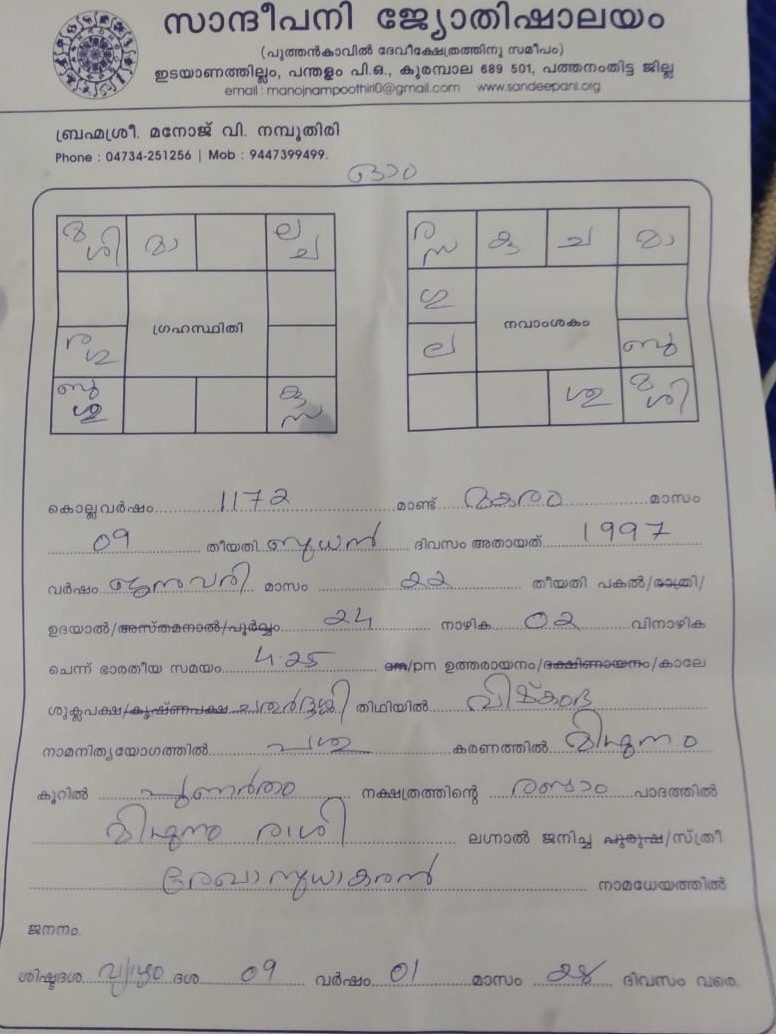 സാന്ദീപനി ജ്യോതിഷാലയം
(പുത്തൻകാവിൽ ദേവീക്ഷേത്രത്തിനു സമീപം)
ഇടയാണത്തില്ലം, പന്തളം പി.ഒ., കുരമ്പാല 689 501, പത്തനംതിട്ട ജില്ല
email : manojnampoothiri0@gmail.com www.sandeepani.org
ബ്രഹ്മശ്രീ. മനോജ് വി. നമ്പൂതിരി
Phone : 04734-251256 | Mob : 9447399499.
ഓം
മ ശി മാ ല ച
ര ഗു ഗ്രഹസ്ഥിതി
ബു ശു കു സ
ര സ കു ച മാ
ഗു നവാംശകം
ല ബു
ശു മ ശി
കൊല്ലവർഷം 1172 മാണ്ട് മകരം മാസം
09 തീയതി ബുധൻ ദിവസം അതായത് 1997
വർഷം ജനുവരി മാസം 22 തീയതി പകൽ/രാത്രി/
ഉദയാൽ/അസ്തമനാൽ/പൂർവ്വം 24 നാഴിക 02 വിനാഴിക
ചെന്ന് ഭാരതീയ സമയം 4.25 am/pm ഉത്തരായനം/ദക്ഷിണായനം/കാലേ
ശുക്ലപക്ഷ/കൃഷ്ണപക്ഷ ചതുർദ്ദശി തിഥിയിൽ വിഷ്കംഭ
നാമനിത്യയോഗത്തിൽ പശു കരണത്തിൽ മിഥുനം
കൂറിൽ പുണർതം നക്ഷത്രത്തിന്റെ രണ്ടാം പാദത്തിൽ
മിഥുനം രാശി ലഗ്നാൽ ജനിച്ച പുരുഷ/സ്ത്രീ
രേഖാ സുധാകരൻ നാമധേയത്തിൽ
ജനനം.
ശിഷ്ടദശ വ്യാഴം ദശ 09 വർഷം 01 മാസം 28 ദിവസം വരെ.